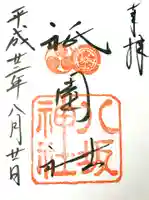 奉拝
祇園社
八坂神社
平成廿二年八月廿日